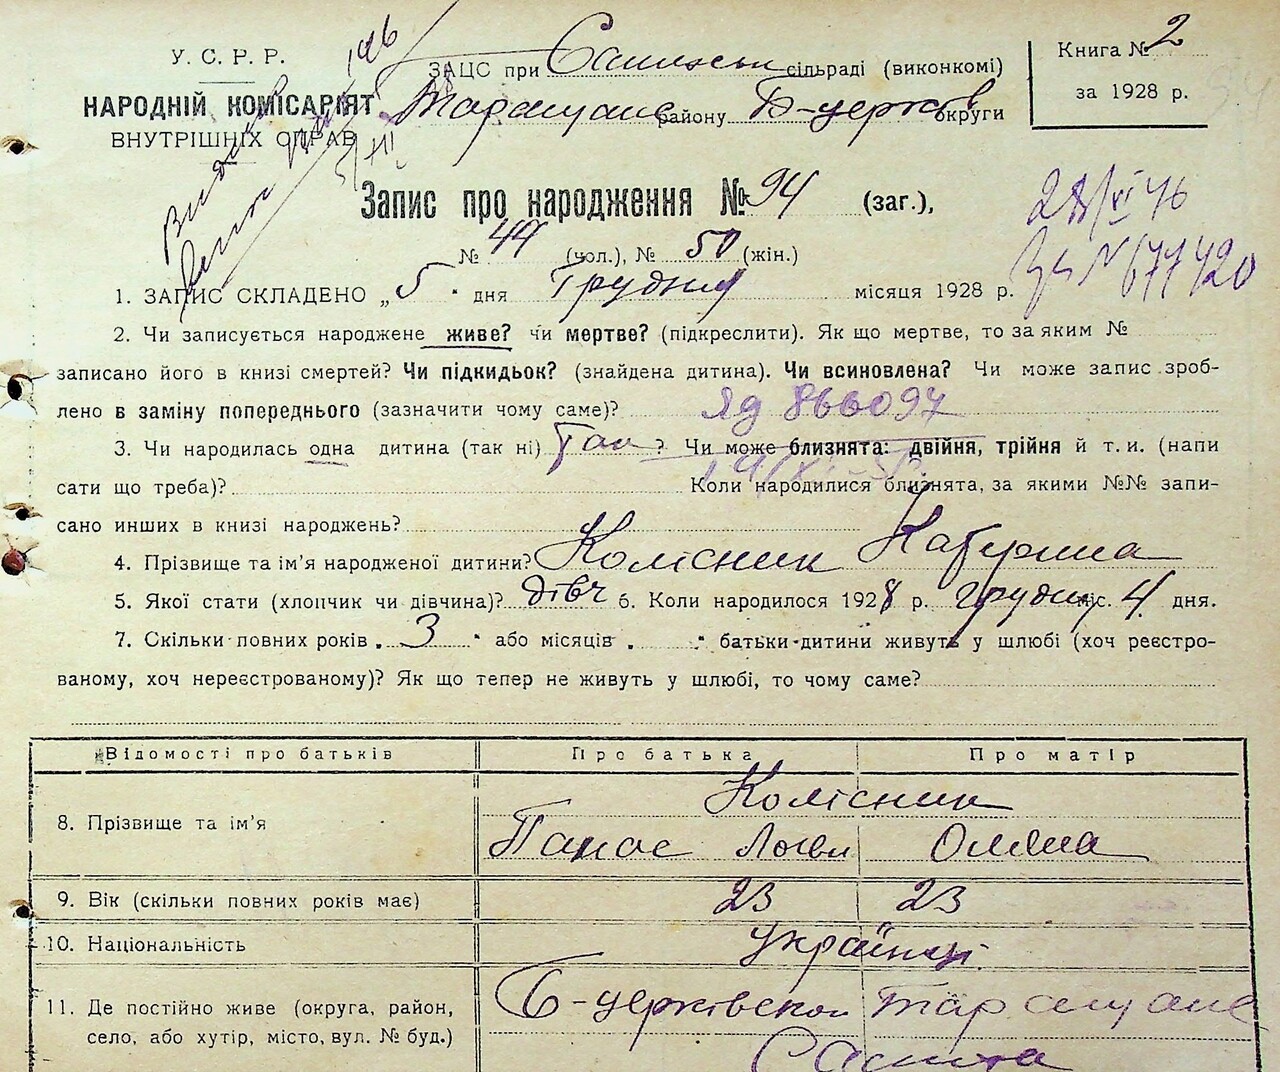 У. С. Р. Р.
НАРОДНІЙ КОМІСАРІЯТ
ВНУТРІШНІХ СПРАВ
ЗАЦС при сільраді (виконкомі)
району Б-церків округи
Книга № 2
за 1928 р.
Запис про народження № 94 (заг.),
28/VI 46
№ 44 (чол.), № 50 (жін.)
677420
1. ЗАПИС СКЛАДЕНО „5" дня Грудня місяця 1928 р.
2. Чи записується народжене живе? чи мертве? (підкреслити). Як що мертве, то за яким №
записано його в книзі смертей? Чи підкидьок? (знайдена дитина). Чи всиновлена? Чи може запис зроб-
лено в заміну попереднього (зазначити чому саме)? 866097
3. Чи народилась одна дитина (так ні) Так? Чи може близнята: двійня, трійня й т. и. (напи
сати що треба)? Коли народилися близнята, за якими №№ запи-
сано инших в книзі народжень?
4. Прізвище та ім'я народженої дитини? Колісник Катерина
5. Якої стати (хлопчик чи дівчина)? дівч 6. Коли народилося 1928 р. грудня міс. 4 дня.
7. Скільки повних років „3" або місяців „ " батьки дитини живуть у шлюбі (хоч реєстро-
ваному, хоч нереєстрованому)? Як що тепер не живуть у шлюбі, то чому саме?
Відомості про батьків Про батька Про матір
Колісник
8. Прізвище та ім'я Панас Оляна
9. Вік (скільки повних років має) 23 23
10. Національність Українці
11. Де постійно живе (округа, район, Б-церківської Таращанс
село, або хутір, місто, вул. № буд.)